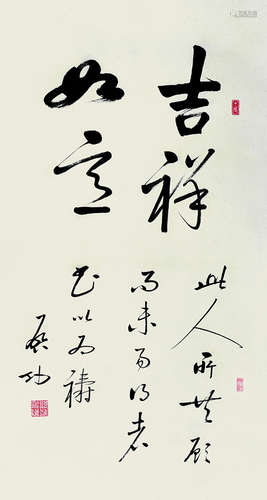 吉祥
如意
此人所共愿
而未易得者
书以为祷
启功